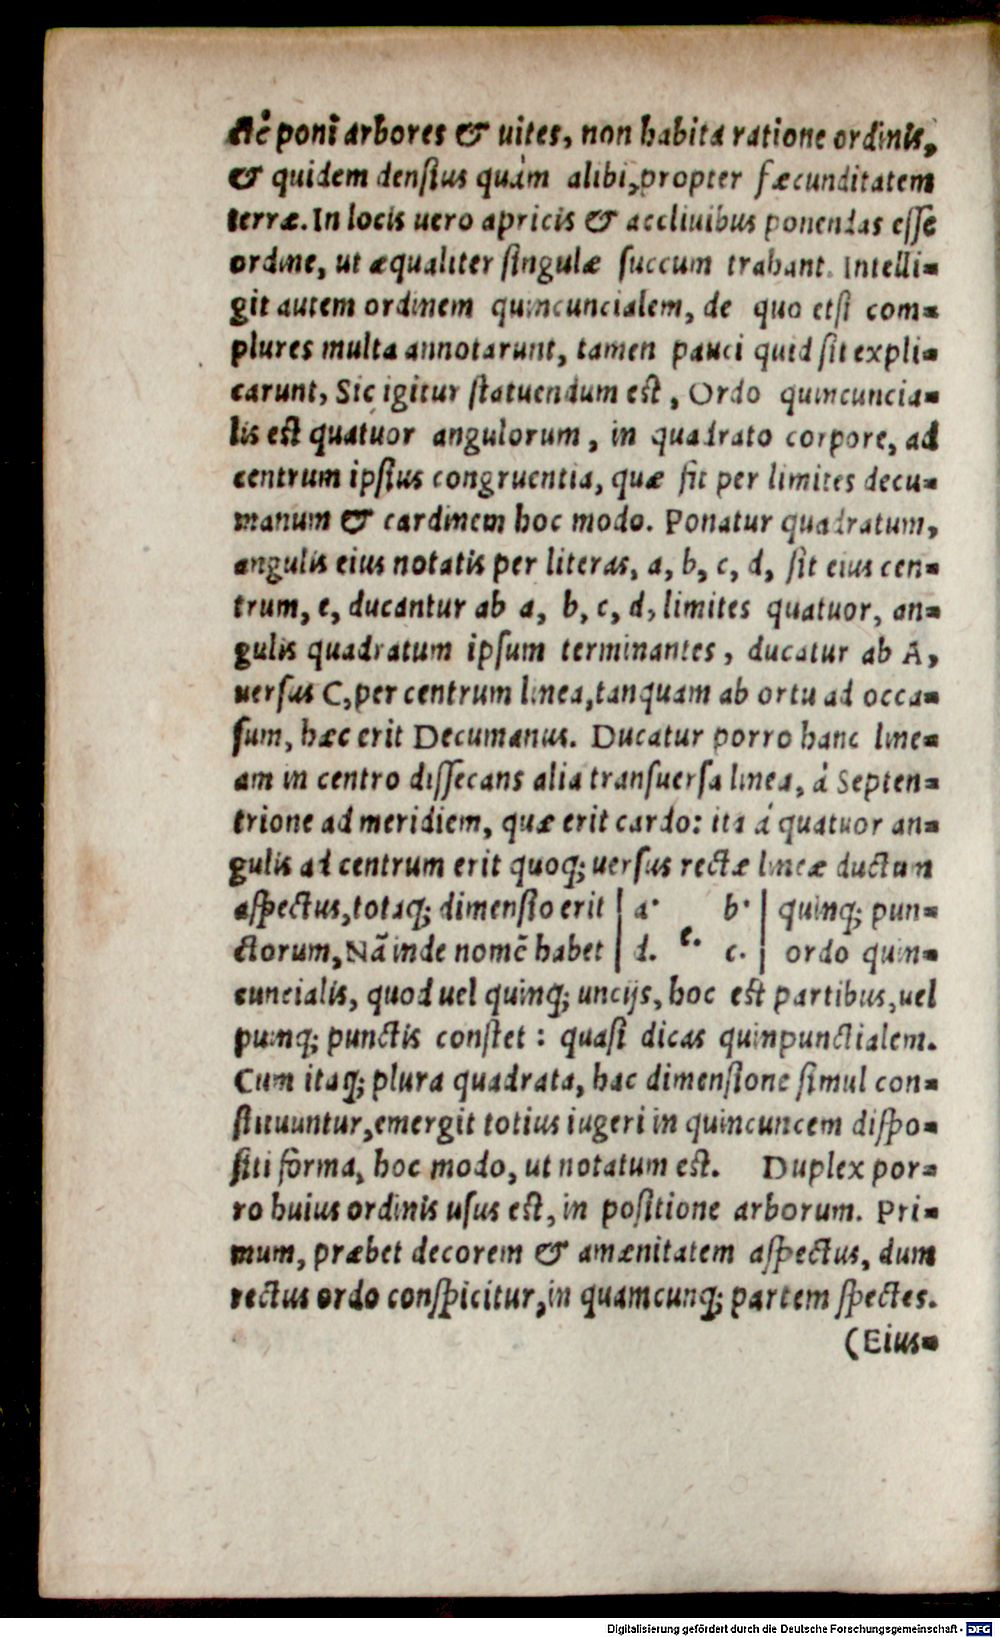 ctè ponî arbores & uites, non habita ratione ordinis,
& quidem densius quàm alibi, propter fæcunditatem
terræ. In locis uero apricis & accliuibus ponendas esse
ordine, ut æqualiter singulæ succum trahant. Intelli-
git autem ordinem quincuncialem, de quo etsi com-
plures multa annotarunt, tamen pauci quid sit expli-
carunt, Sic igitur statuendum est, Ordo quincuncia-
lis est quatuor angulorum, in quadrato corpore, ad
centrum ipsius congruentia, quæ fit per limites decu-
manum & cardinem hoc modo. Ponatur quadratum,
angulis eius notatis per literas, a, b, c, d, sit eius cen-
trum, e, ducantur ab a, b, c, d, limites quatuor, an-
gulis quadratum ipsum terminantes, ducatur ab A,
uersus C, per centrum linea, tanquam ab ortu ad occa-
sum, hæc erit Decumanus. Ducatur porro hanc line-
am in centro dissecans alia transuersa linea, á Septen-
trione ad meridiem, quæ erit cardo: ita á quatuor an-
gulis ad centrum erit quoq; uersus rectæ lineæ ductum
aspectus, totaq; dimensio erit | a· b· | quinq; pun-
ctorum, Nã inde nomẽ habet | d. e. c. | ordo quin-
cuncialis, quod uel quinq; uncijs, hoc est partibus, uel
puinq; punctis constet : quasi dicas quinpunctialem.
Cum itaq; plura quadrata, hac dimensione simul con-
stituuntur, emergit totius iugeri in quincuncem dispo-
siti forma, hoc modo, ut notatum est. Duplex por-
ro huius ordinis usus est, in positione arborum. Pri-
mum, præbet decorem & amænitatem aspectus, dum
rectus ordo conspicitur, in quamcunq; partem spectes.
(Eius-
Digitalisierung gefördert durch die Deutsche Forschungsgemeinschaft - DFG